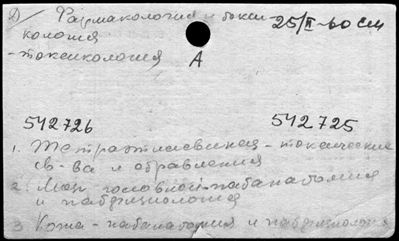 Д/ Фармакология и токси- 25/II-60 см
кология
- токсикология А
542726 542725
1. Тетраэтилсвинец - токсические
св-ва и отравления
2. Мозг головной - патанатомия
и патфизиология
3. Кожа - патанатомия и патфизиология